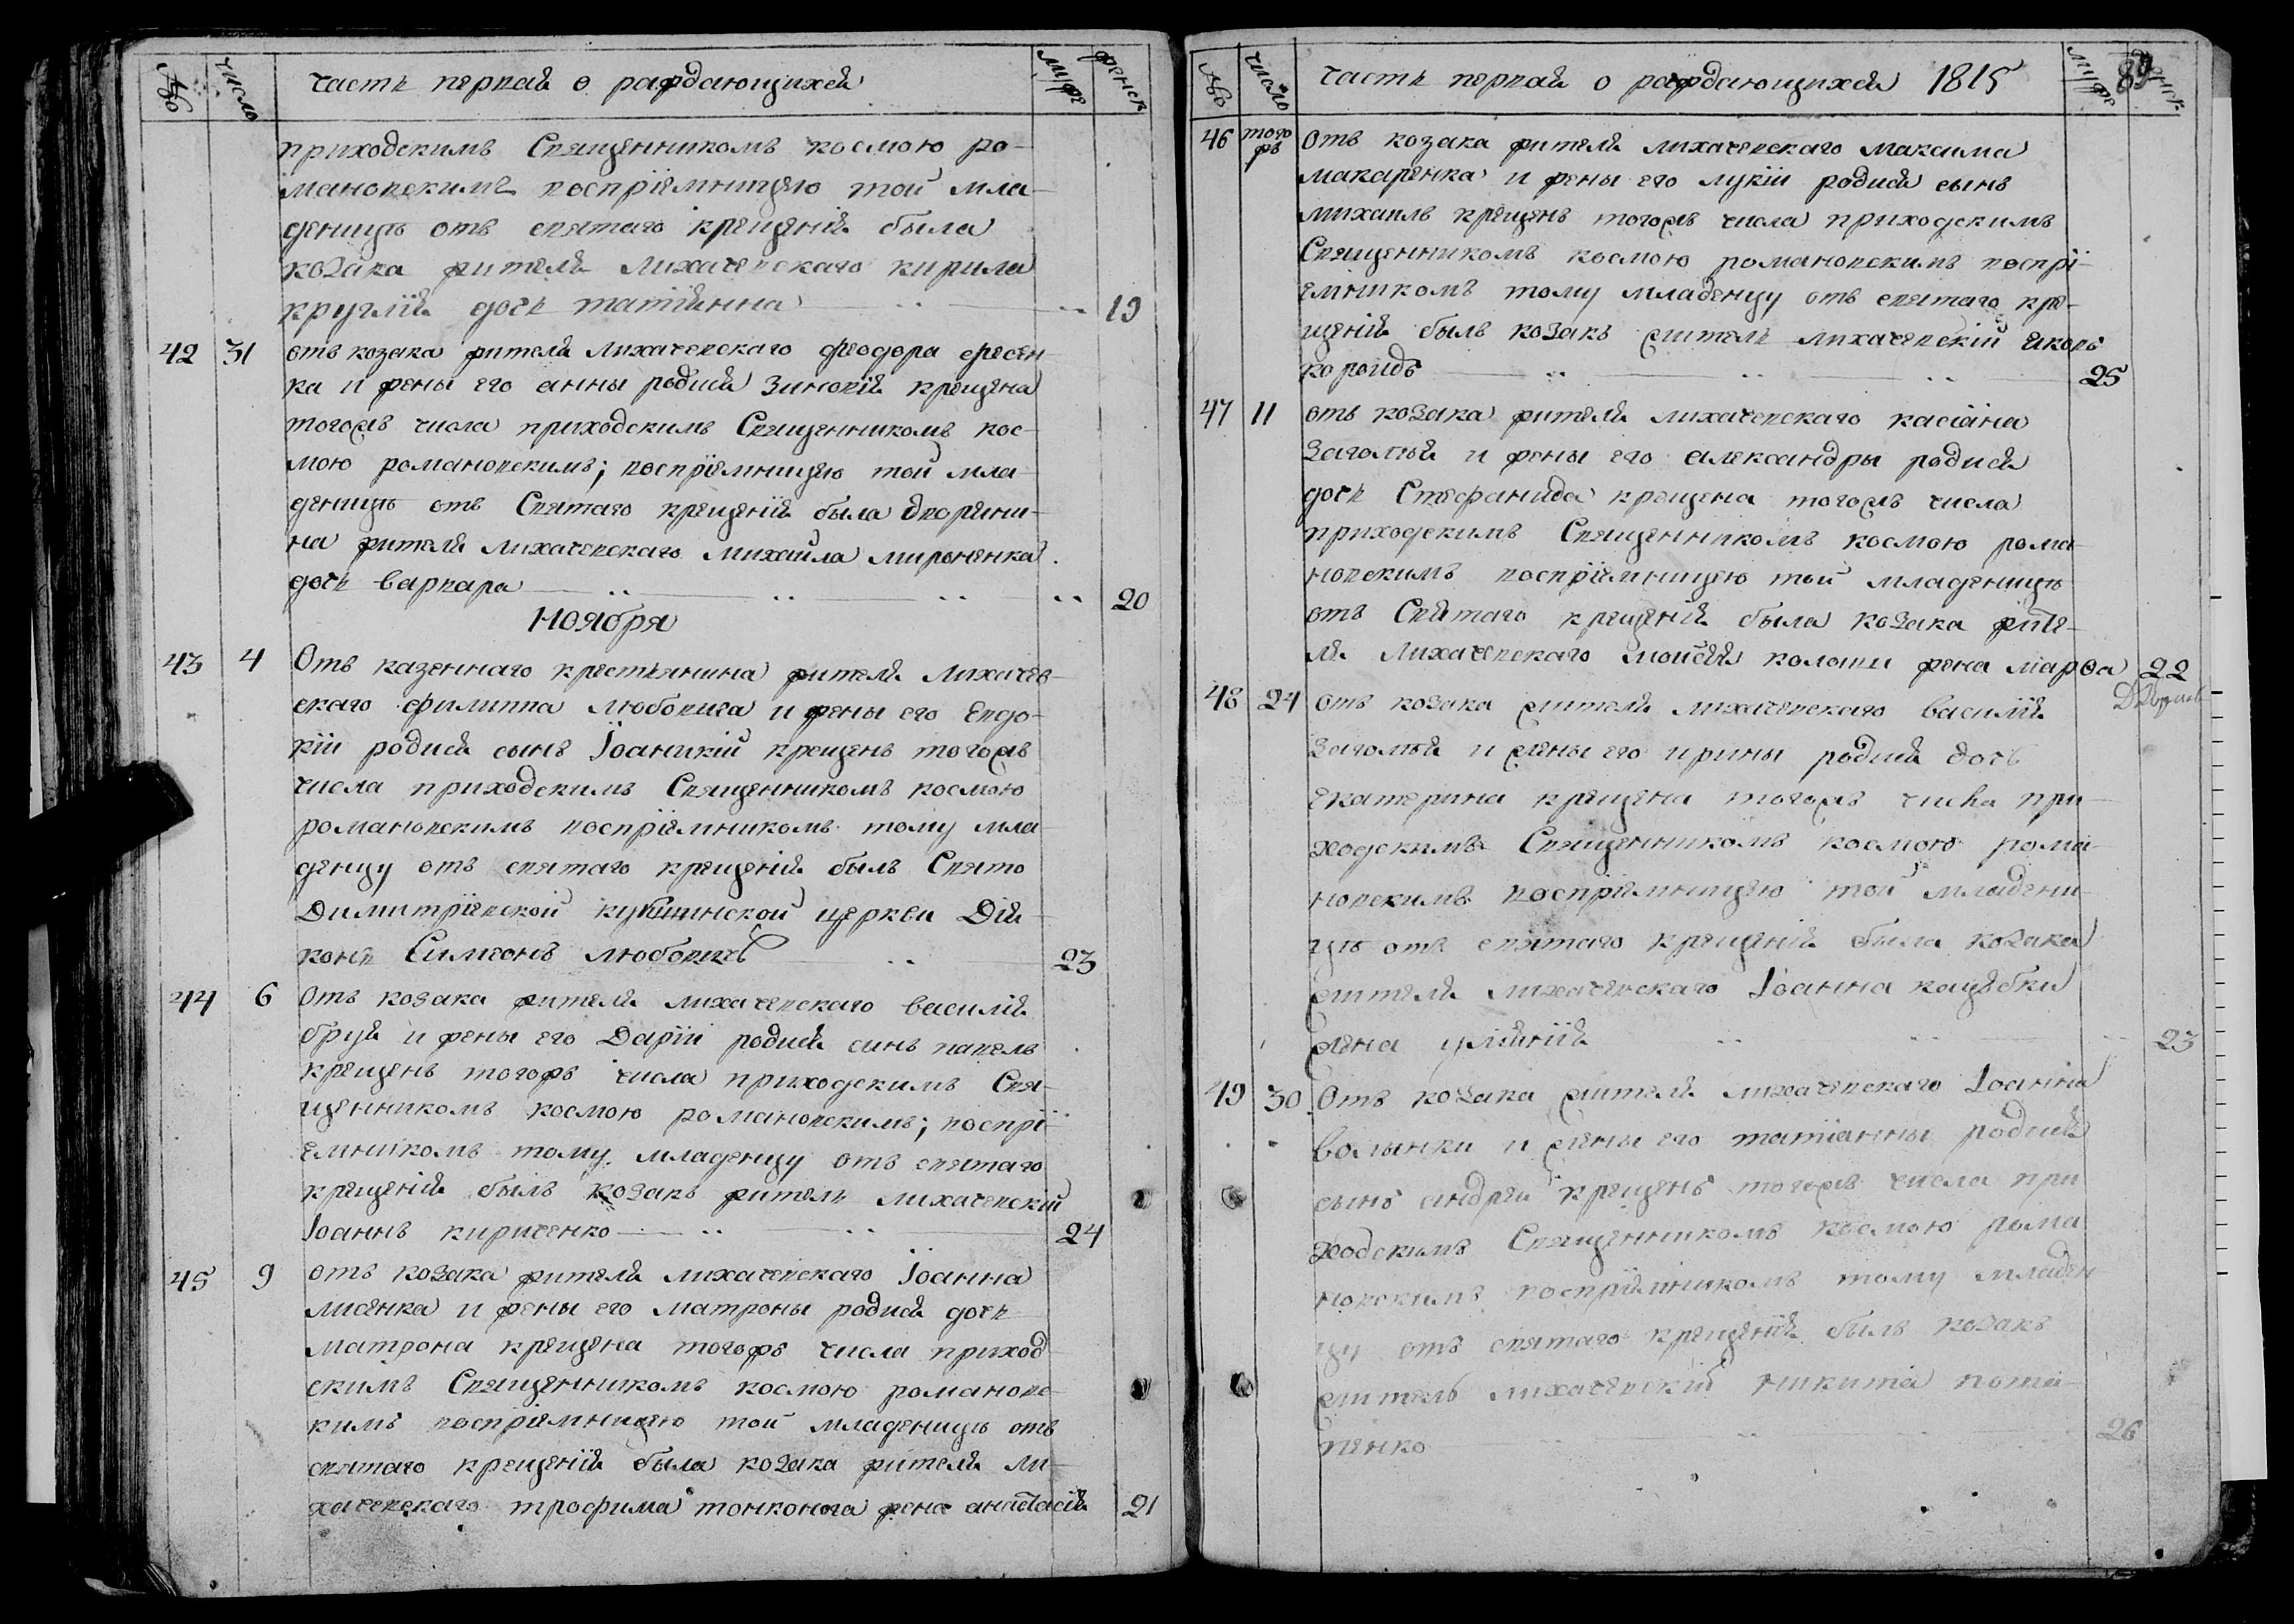 № число часть первая о раждающихся муж женск
приходскимъ Священникомъ космою ро-
мановскимъ воспріемницею той мла-
деницѣ отъ святаго крещенія была
козака жителя лихачевскаго кирила
круглія дочь татіанна 19
42 31 отъ козака жителя лихачевскаго феодора фесен
ка и жены его анны родися зиновія крещена
тогожъ числа приходскимъ Священникомъ кос-
мою романовскимъ; воспріемницею той мла-
деницѣ отъ Святаго крещенія была дворяни-
на жителя лихачевскаго михаила мироненка
дочь варвара 20
Ноября
43 4 Отъ казеннаго крестьянина жителя лихачев-
скаго филиппа любовича и жены его Евдо-
кіи родися сынъ Іоаникій крещенъ тогожъ
числа приходскимъ Священникомъ космою
романовскимъ воспріемникомъ тому мла-
денцу отъ святаго крещенія былъ Свято
Димитріевской церкви Дія-
конъ Симеонъ любовичъ 23
44 6 Отъ козака жителя лихачевскаго василія
бруя и жены его Даріи родися синъ павелъ
крещенъ тогожъ числа приходскимъ Свя-
щенникомъ космою романовскимъ; воспрі-
емникомъ тому младенцу отъ святаго
крещенія былъ козакъ житель лихачевскій
Іоаннъ кириченко 24
45 9 отъ козака жителя лихачевскаго Іоанна
лисенка и жены его матроны родися дочь
матрона крещена тогожъ числа приход-
скимъ Священникомъ космою романовс-
кимъ воспріемницею той младеницѣ отъ
святаго крещенія была козака жителя ли-
хачевскаго трофима тонконога жена анастасія 21
№ число часть первая о раждающихся 1815 муж женск
46 того жъ Отъ козака жителя лихачевскаго максима
макаренка и жены его лукіи родися сынъ
михаилъ крещенъ тогожъ числа приходскимъ
Священникомъ космою романовскимъ воспрі-
емникомъ тому младенцу отъ святаго кре-
щенія былъ козакъ житель лихачевскій яковъ
25
47 11 отъ козака жителя лихачевскаго касіана
заголія и жены его александры родися
дочь Стефанида крещена тогожъ числа
приходскимъ Священникомъ космою рома-
новскимъ воспріемницею той младеницѣ
отъ Святаго крещенія была козака жите-
ля лихачевскаго моисея колоши жена марѳа 22
48 24 отъ козака жителя лихачевскаго василія
заголія и жены его ирины родися дочь
екатерина крещена тогожъ числа при-
ходскимъ Священникомъ космою рома-
новскимъ воспріемницею той младени-
цѣ отъ святаго крещенія была козака
жителя лихачевскаго Іоанна коцюбки
жена 23
49 30 Отъ козака жителя лихачевскаго Іоанна
волынки и жены его татіанны родися
сынъ андрей крещенъ тогожъ числа при
ходскимъ Священникомъ космою рома
новскимъ воспріемникомъ тому младен
цу отъ святаго крещенія былъ козакъ
житель лихачевскій никита пота-
пенко 26